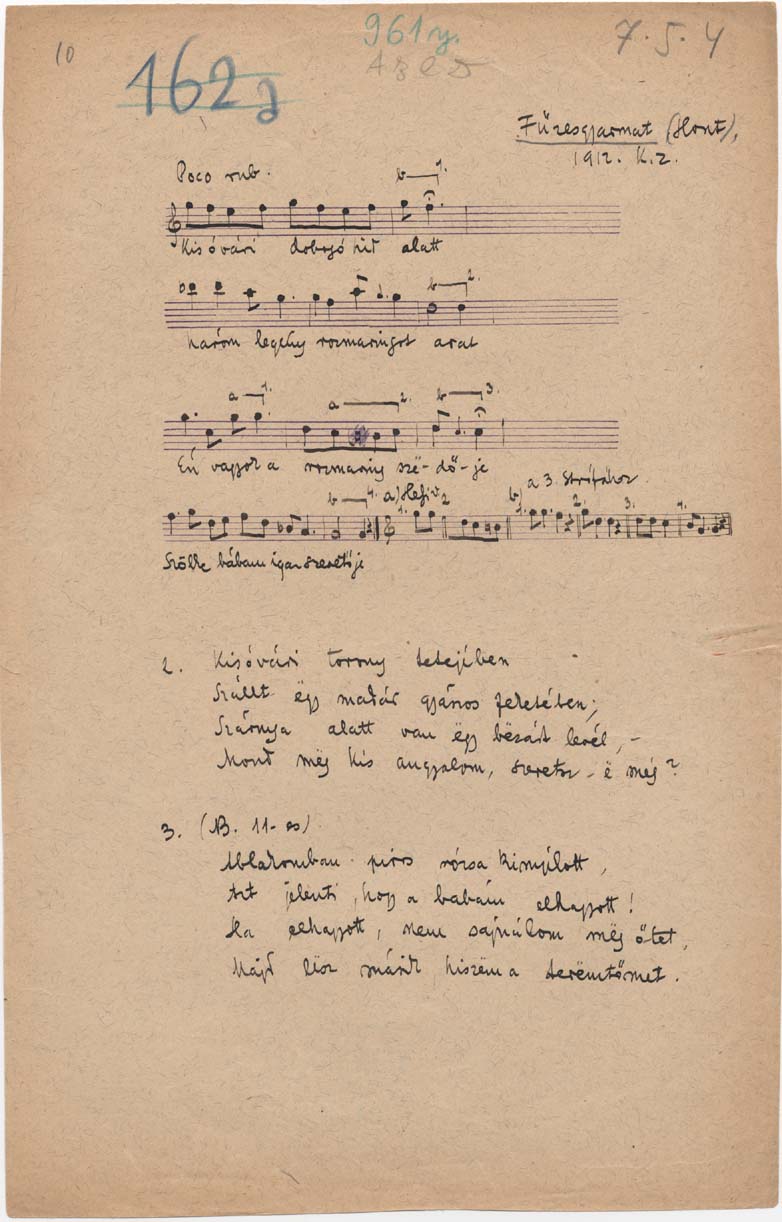 10
961 y.
7.5.4
162 g
A B C D
Fűzesgyarmat (Hont),
1912. K.Z.
Poco rub.
b 1.
Kisóvári dobogó híd alatt
b 2.
három legény rozmaringot arat
a 1. a 2. b 3.
Én vagyok a rozmaring szë-dő-je
b 4. a) Helyit b) a 3. strófához
1. 2. 1. 2. 3. 4.
Szőke bábám igaz szeretője
2. Kisóvári torony tetejében
Szállt ëgy madár gyászos feketében;
Szárnya alatt van ëgy bëzárt levél, –
Mond mëg kis angyalom, szeretsz-ë még?
3. (B. 11-es)
Ablakomban piros rózsa kinyílott,
Azt jelenti, hogy a babám elhagyott!
Ha elhagyott, nem sajnálom mëg őtet,
Majd lësz másik, hiszëm a terëmtőmet.